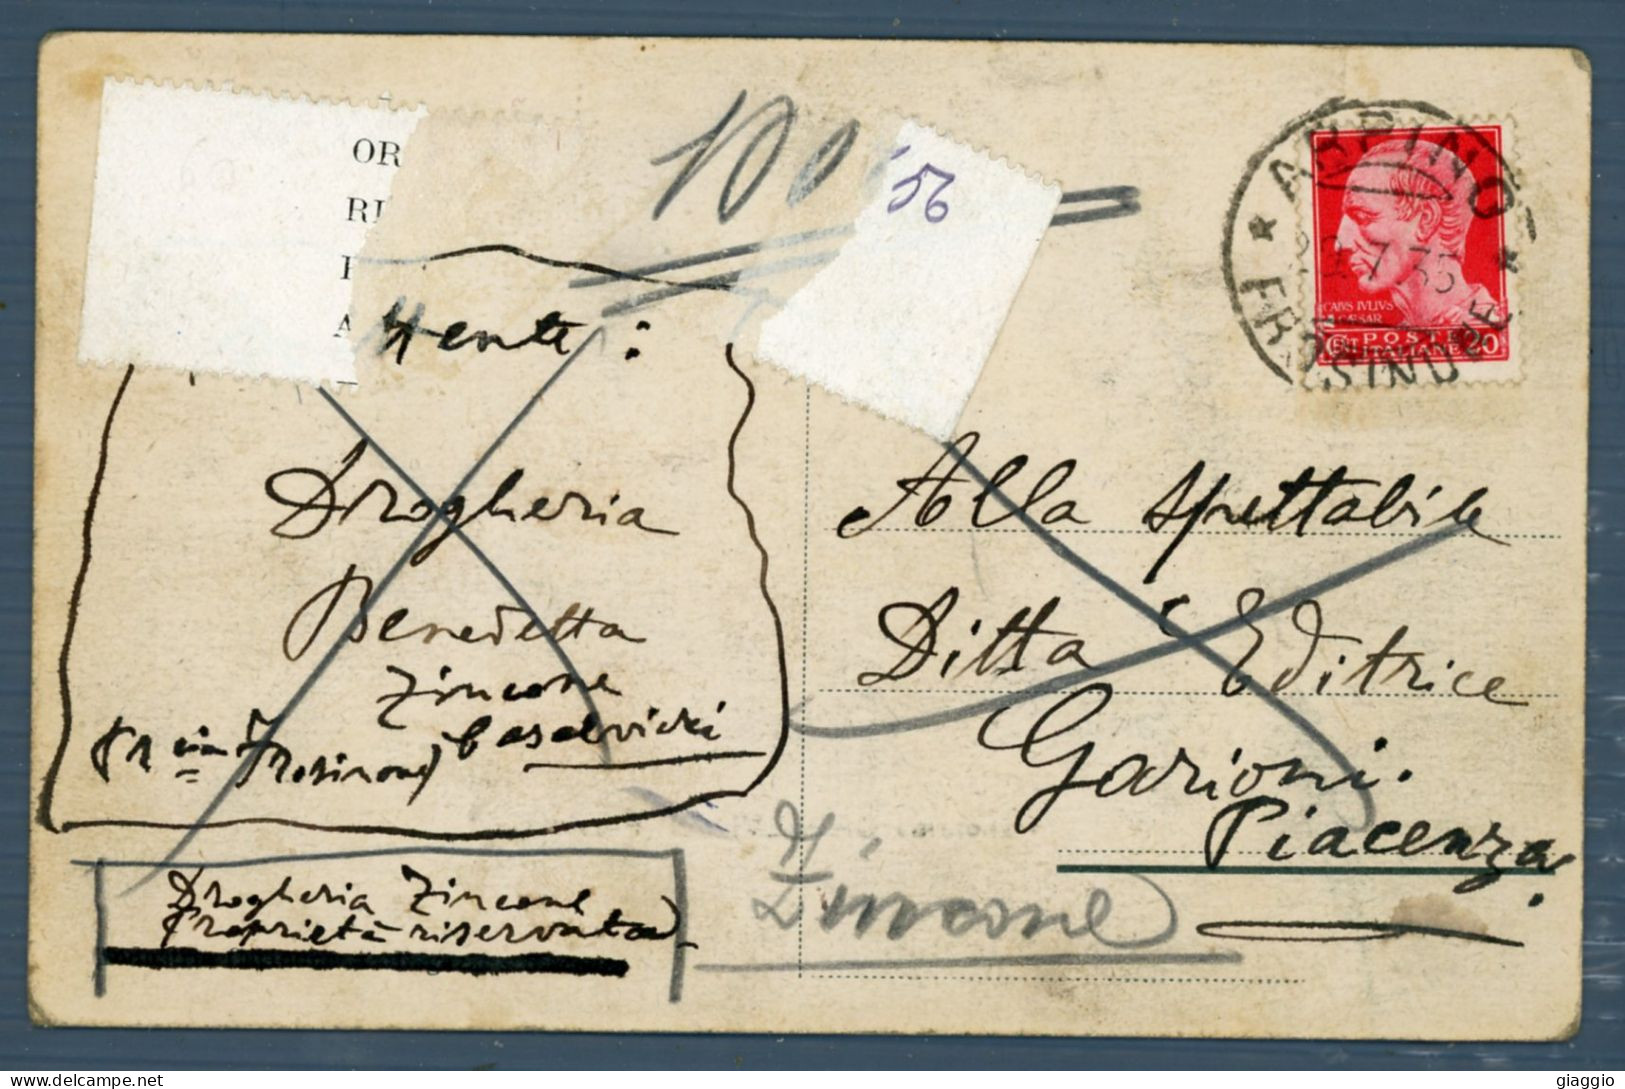 OR
RI
A
100
56
ARPINO
FROSINONE
7 35
CAIVS IVLIVS
CAESAR
POS
ITALIANE 20
Mente:
Drogheria
Benedetta
Zincone
Casalvieri
Frosinone)
Alla spettabile
Ditta Editrice
Garioni.
Piacenza.
Drogheria Zincone
Proprietà riservata
Zincone
giaggio
delcampe.net